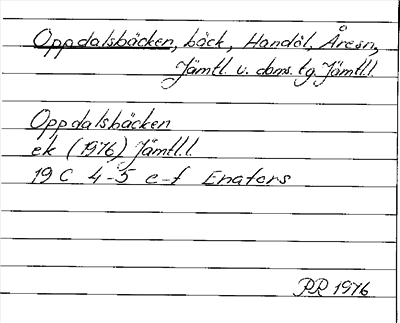 Oppdalsbäcken, bäck, Handöl, Åresn,
Jämtl. v. doms. tg. Jämtl.l.
Oppdalsbäcken
ek (1976) Jämtl.l.
19 C 4-5 e-f Enafors
PR 1976